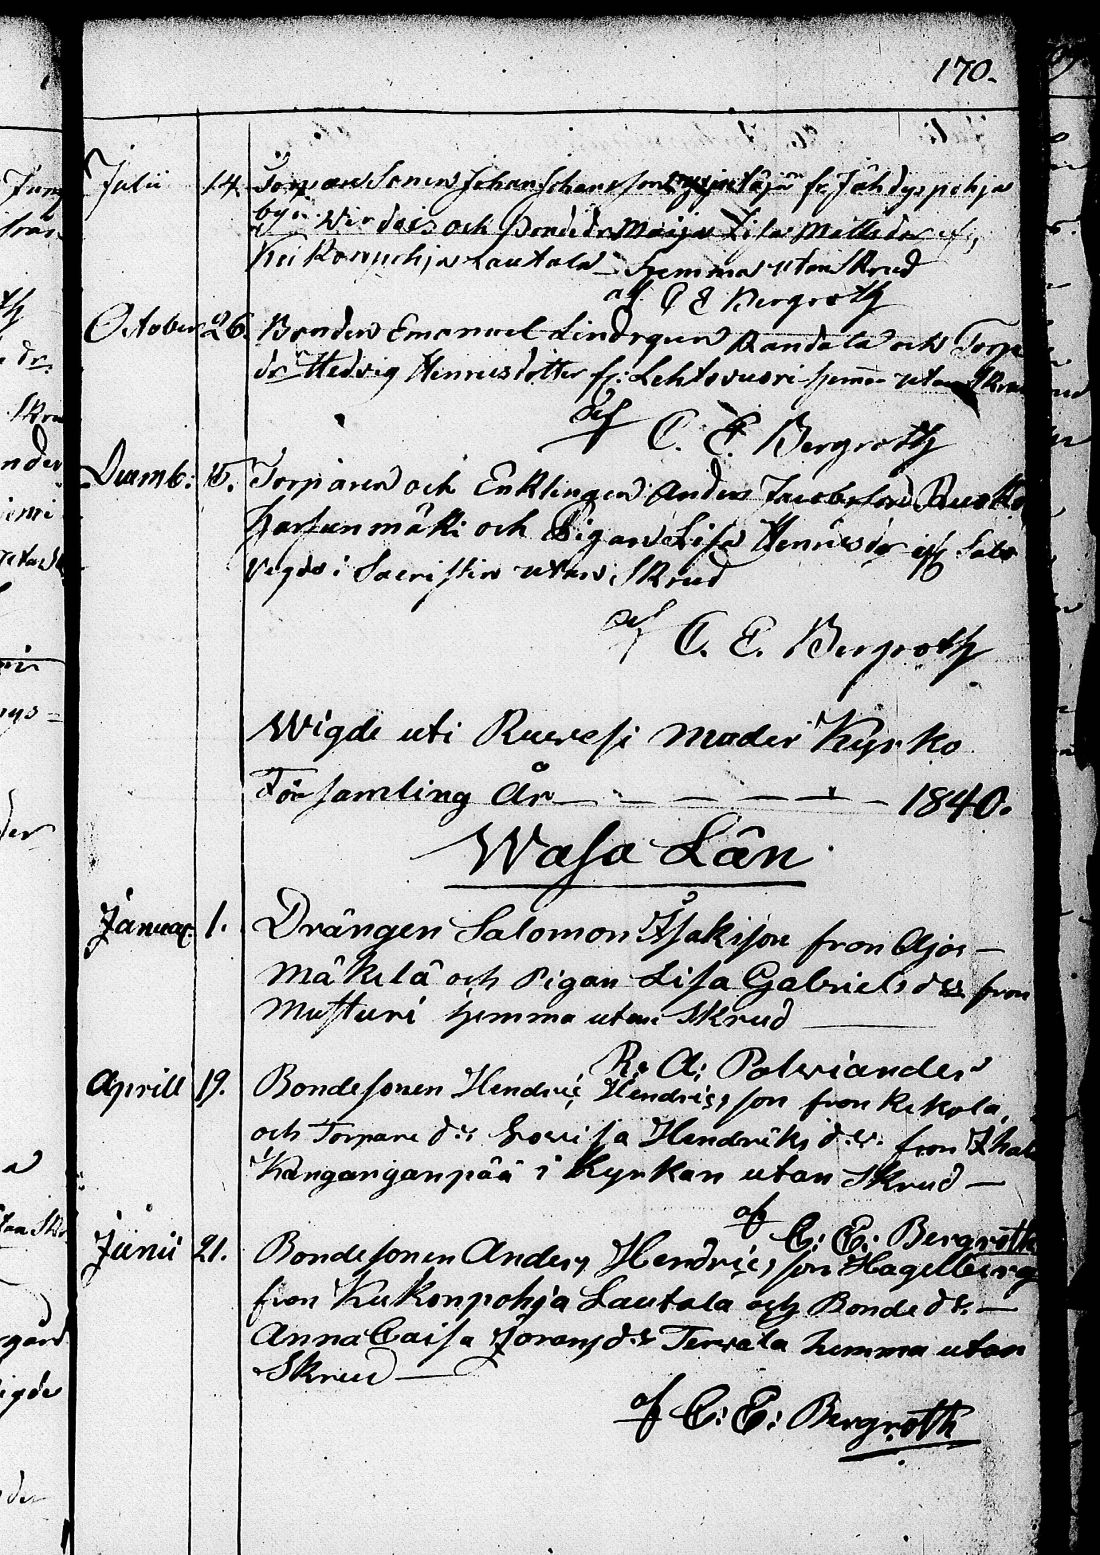 170.
Julii 14. Torparesonen Johan Johansson fr: Jähdyspohja
by i Wirdois och Bondedr Maija Lisa Mattsdr
Kukonpohja Lautala hemma utan Skrud
af C E Bergroth
October 26. Bonden Emanuel Lindgren Randala och Torp
dr Hedvig Henricsdotter fr: Lehtovuori hemma utan Skrud
af
C. E. Bergroth
Decemb: Torparen och Enklingen Anders Jacobsson
Harsunmäki och Pigan Lisa Henricsdr
vigde i Sacristin utan Skrud
af C. E. Bergroth
Wigde uti Ruovesi Moder Kyrko
Församling År — — — — 1840.
Wasa Län
Januar: 1. Drängen Salomon Isakison fron Ajos-
mäkelä och Pigan Lisa Gabrielsdr fron
Musturi hemma utan Skrud —
R. A: Polviander
Aprill 19. Bondesonen Hendric Hendricsson fron Kekola
och Torparedr: Lovisa Hendriksdr: fron
Kanganganpää i Kyrkan utan Skrud —
af C: E: Bergroth
Junii 21. Bondesonen Anders Hendricsson Hagelberg
fron Kukonpohja Lautala och Bondedr: —
Anna Caisa Joransdr Tervala hemma utan
Skrud —
af C: E: Bergroth